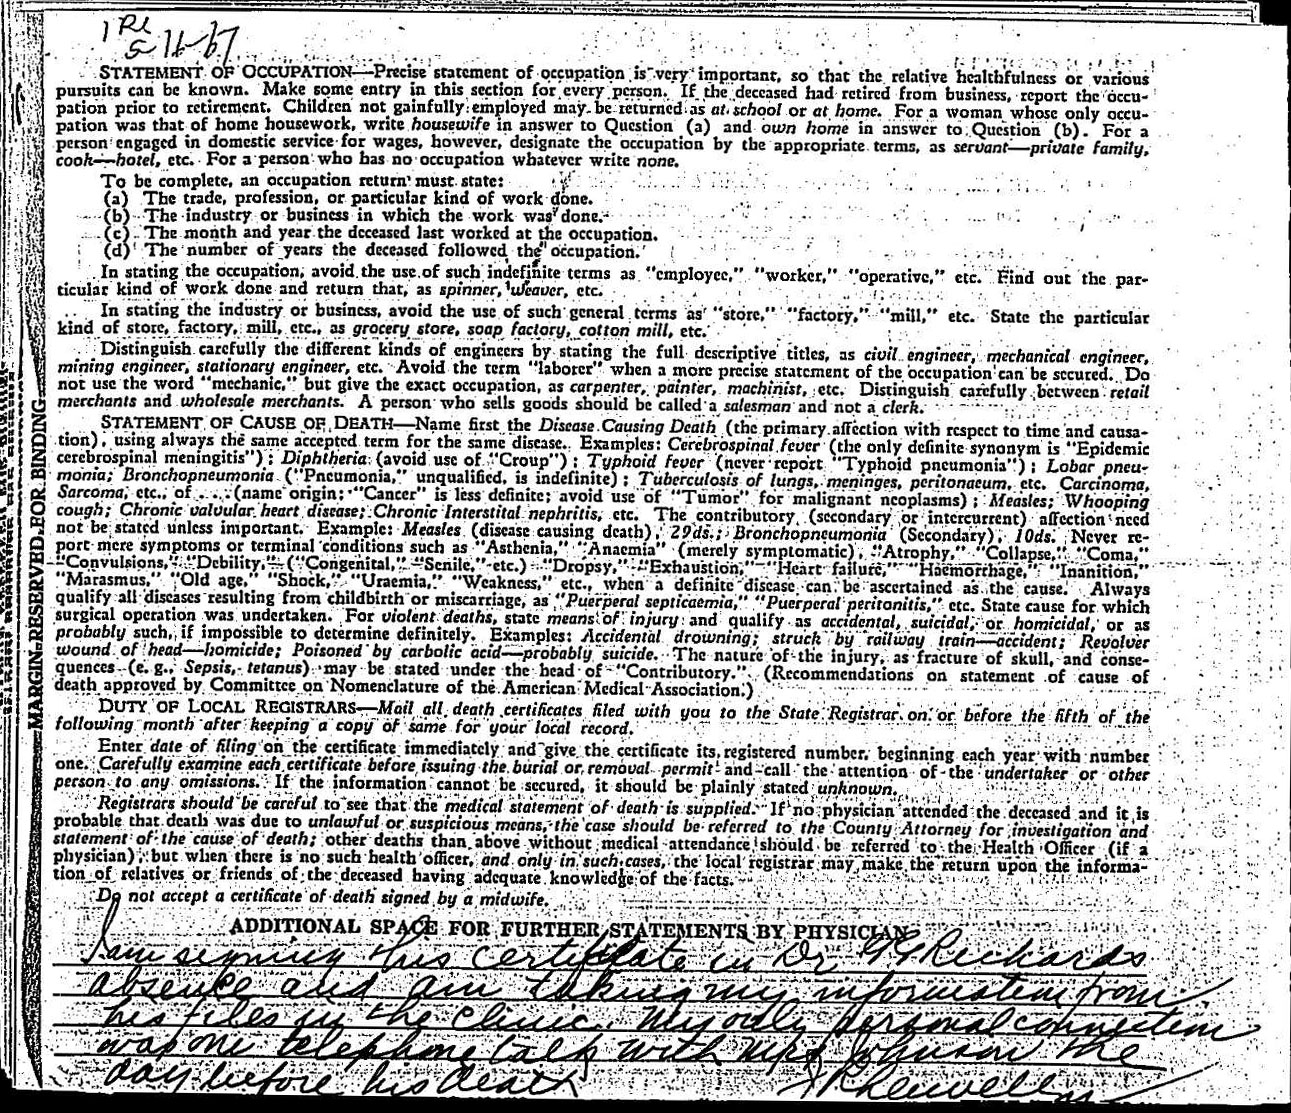 5-16-67
STATEMENT OF OCCUPATION—Precise statement of occupation is very important, so that the relative healthfulness or various
pursuits can be known. Make some entry in this section for every person. If the deceased had retired from business, report the occu-
pation prior to retirement. Children not gainfully employed may be returned as at school or at home. For a woman whose only occu-
pation was that of home housework, write housewife in answer to Question (a) and own home in answer to Question (b). For a
person engaged in domestic service for wages, however, designate the occupation by the appropriate terms, as servant—private family,
cook—hotel, etc. For a person who has no occupation whatever write none.
To be complete, an occupation return must state:
(a) The trade, profession, or particular kind of work done.
(b) The industry or business in which the work was done.
(c) The month and year the deceased last worked at the occupation.
(d) The number of years the deceased followed the occupation.
In stating the occupation, avoid the use of such indefinite terms as "employee," "worker," "operative," etc. Find out the par-
ticular kind of work done and return that, as spinner, weaver, etc.
In stating the industry or business, avoid the use of such general terms as "store," "factory," "mill," etc. State the particular
kind of store, factory, mill, etc., as grocery store, soap factory, cotton mill, etc.
Distinguish carefully the different kinds of engineers by stating the full descriptive titles, as civil engineer, mechanical engineer,
mining engineer, stationary engineer, etc. Avoid the term "laborer" when a more precise statement of the occupation can be secured. Do
not use the word "mechanic," but give the exact occupation, as carpenter, painter, machinist, etc. Distinguish carefully between retail
merchants and wholesale merchants. A person who sells goods should be called a salesman and not a clerk.
STATEMENT OF CAUSE OF DEATH—Name first the Disease Causing Death (the primary affection with respect to time and causa-
tion), using always the same accepted term for the same disease. Examples: Cerebrospinal fever (the only definite synonym is "Epidemic
cerebrospinal meningitis"); Diphtheria (avoid use of "Croup"); Typhoid fever (never report "Typhoid pneumonia"); Lobar pneu-
monia; Bronchopneumonia ("Pneumonia," unqualified, is indefinite); Tuberculosis of lungs, meninges, peritonaeum, etc. Carcinoma,
Sarcoma, etc., of ....(name origin; "Cancer" is less definite; avoid use of "Tumor" for malignant neoplasms); Measles; Whooping
cough; Chronic valvular heart disease; Chronic Interstital nephritis, etc. The contributory (secondary or intercurrent) affection need
not be stated unless important. Example: Measles (disease causing death), 29ds.; Bronchopneumonia (Secondary), 10ds. Never re-
port mere symptoms or terminal conditions such as "Asthenia," "Anaemia" (merely symptomatic), "Atrophy," "Collapse," "Coma,"
"Convulsions," "Debility," ("Congenital," "Senile," etc.) "Dropsy," "Exhaustion," "Heart failure," "Haemorrhage," "Inanition,"
"Marasmus," "Old age," "Shock," "Uraemia," "Weakness," etc., when a definite disease can be ascertained as the cause. Always
qualify all diseases resulting from childbirth or miscarriage, as "Puerperal septicaemia," "Puerperal peritonitis," etc. State cause for which
surgical operation was undertaken. For violent deaths, state means of injury and qualify as accidental, suicidal, or homicidal, or as
probably such, if impossible to determine definitely. Examples: Accidental drowning; struck by railway train—accident; Revolver
wound of head—homicide; Poisoned by carbolic acid—probably suicide. The nature of the injury, as fracture of skull, and conse-
quences (e. g., Sepsis, tetanus) may be stated under the head of "Contributory." (Recommendations on statement of cause of
death approved by Committee on Nomenclature of the American Medical Association.)
DUTY OF LOCAL REGISTRARS—Mail all death certificates filed with you to the State Registrar on or before the fifth of the
following month after keeping a copy of same for your local record.
Enter date of filing on the certificate immediately and give the certificate its registered number, beginning each year with number
one. Carefully examine each certificate before issuing the burial or removal permit and call the attention of the undertaker or other
person to any omissions. If the information cannot be secured, it should be plainly stated unknown.
Registrars should be careful to see that the medical statement of death is supplied. If no physician attended the deceased and it is
probable that death was due to unlawful or suspicious means, the case should be referred to the County Attorney for investigation and
statement of the cause of death; other deaths than above without medical attendance should be referred to the Health Officer (if a
physician), but when there is no such health officer, and only in such cases, the local registrar may make the return upon the informa-
tion of relatives or friends of the deceased having adequate knowledge of the facts.
Do not accept a certificate of death signed by a midwife.
ADDITIONAL SPACE FOR FURTHER STATEMENTS BY PHYSICIAN
I am signing this certificate in Dr. G G Richards
absence and am taking my information from
his files in the clinic. My only personal connection
was one telephone talk with Mrs Johnson the
day before his death
MARGIN RESERVED FOR BINDING